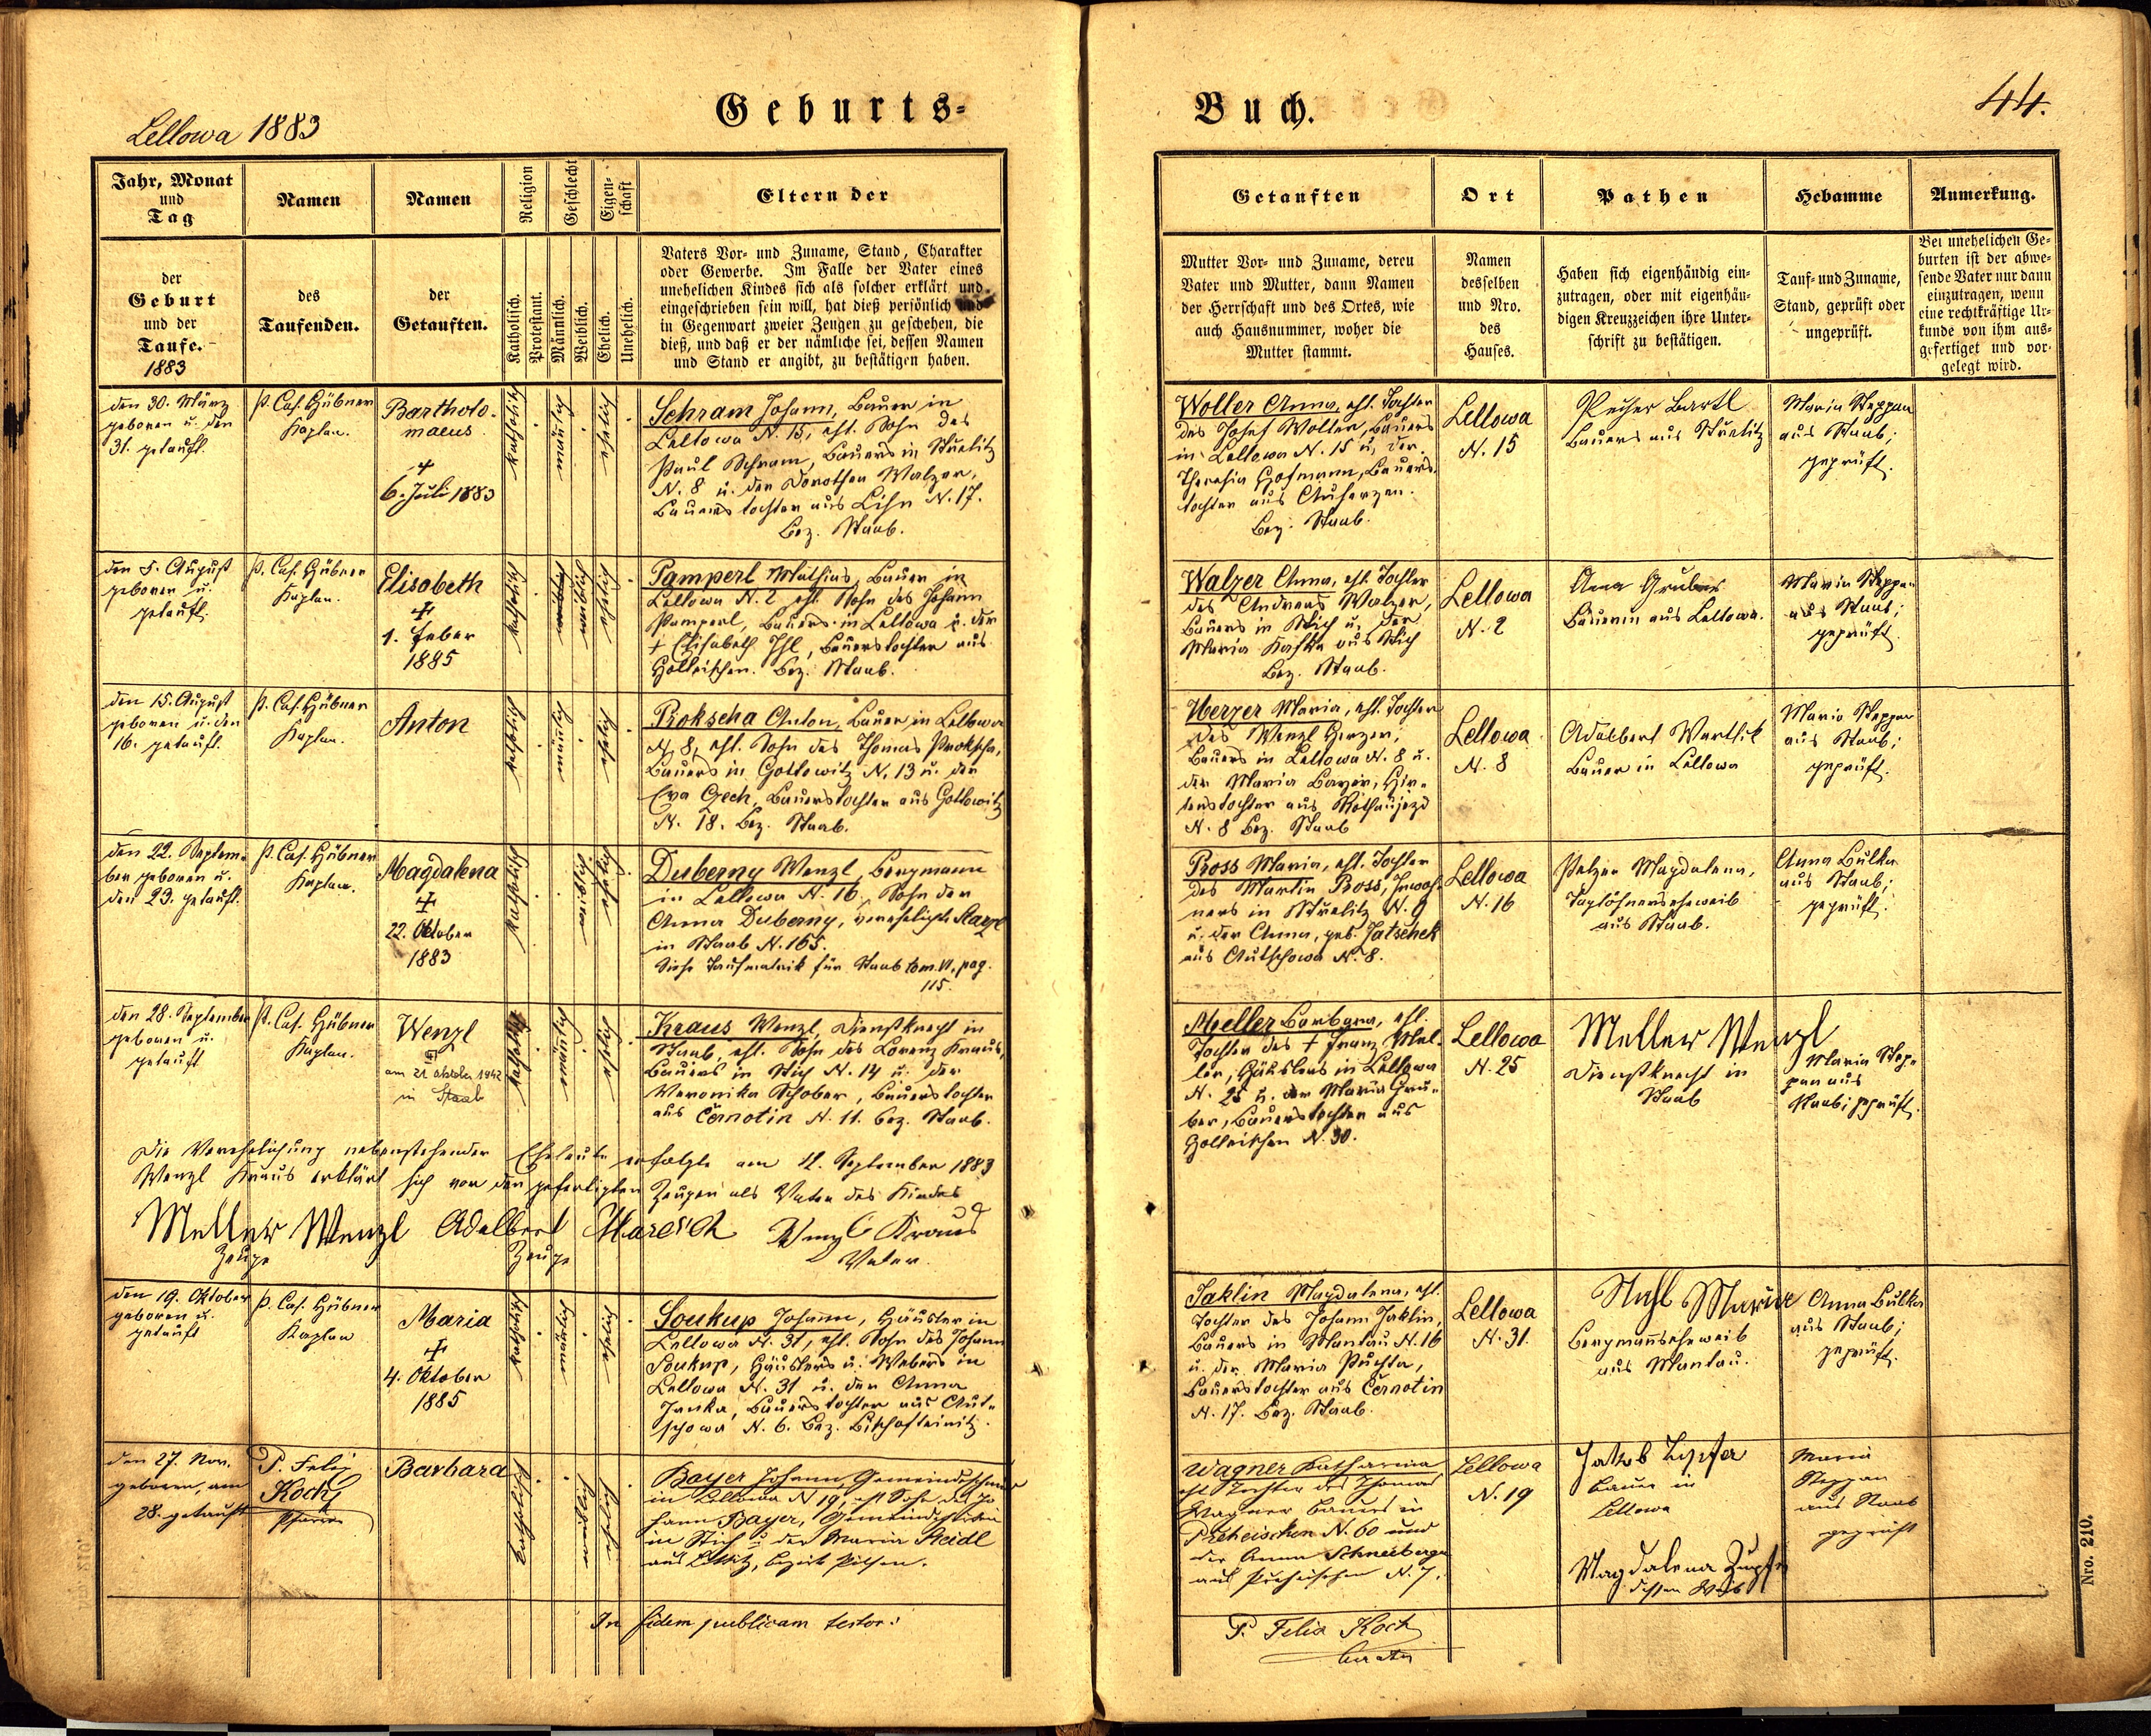 Lellowa 1883
Geburts-
Buch.
44.
Jahr, Monat
und
Tag
Namen
Namen
Religion
Geschlecht
Eigen-
schaft
Eltern der
Getauften
Ort
Pathen
Hebamme
Anmerkung.
der
Geburt
und der
Taufe.
1883
des
Taufenden.
der
Getauften.
Katholisch.
Protestant.
Männlich.
Weiblich.
Ehelich.
Unehelich.
Vaters Vor- und Zuname, Stand, Charakter
oder Gewerbe. Im Falle der Vater eines
unehelichen Kindes sich als solcher erklärt und
eingeschrieben sein will, hat dieß persönlich und
in Gegenwart zweier Zeugen zu geschehen, die
dieß, und daß er der nämliche sei, dessen Namen
und Stand er angibt, zu bestätigen haben.
Mutter Vor- und Zuname, deren
Vater und Mutter, dann Namen
der Herrschaft und des Ortes, wie
auch Hausnummer, woher die
Mutter stammt.
Namen
desselben
und Nro.
des
Hauses.
Haben sich eigenhändig ein-
zutragen, oder mit eigenhän-
digen Kreuzzeichen ihre Unter-
schrift zu bestätigen.
Tauf- und Zuname,
Stand, geprüft oder
ungeprüft.
Bei unehelichen Ge-
burten ist der abwe-
sende Vater nur dann
einzutragen, wenn
eine rechtkräftige Ur-
kunde von ihm aus-
gefertiget und vor-
gelegt wird.
den 30. März
geboren u. den
31. getauft.
P. Cas. Hübner
Kaplan.
Bartholo-
maeus
+
6. Juli 1883
katholisch
männlich
ehelich
Schram Johann, Bauer in
Lellowa N. 15, ehl. Sohn des
Paul Schram, Bauers in Strelitz
N. 8 u. der Dorothea Walzer,
Bauerstochter aus Lihn N. 17.
Bez. Staab.
Woller Anna, ehl. Tochter
des Josef Woller, Bauers
in Lellowa N. 15 u. der
Theresia Hofmann, Bauers-
tochter aus Auherzen.
Bez. Staab.
Lellowa
N. 15
Bartl
Bauers aus Strelitz
Maria Steppan
aus Staab;
geprüft.
den 5. August
geboren u.
getauft.
P. Cas. Hübner
Kaplan.
Elisabeth
+
1. Feber
1885
katholisch
weiblich
ehelich
Pamperl Mathias, Bauer in
Lellowa N. 2 ehl. Sohn des Johann
Pamperl, Bauers in Lellowa u. der
+ Elisabeth Ihl, Bauerstochter aus
Holleischen. Bez. Staab.
Walzer Anna, ehl. Tochter
des Andreas Walzer,
Bauers in Stich u. der
Maria Kafka aus Stich
Bez. Staab.
Lellowa
N. 2
Anna Gruber
Bäuerin aus Lellowa.
Maria Steppan
aus Staab;
geprüft.
den 15. August
geboren u. den
16. getauft.
P. Cas. Hübner
Kaplan.
Anton
katholisch
männlich
ehelich
Prokscha Anton, Bauer in Lellowa
N. 8, ehl. Sohn des Thomas Proksch,
Bauers in Gottowitz N. 13 u. der
Eva Czech, Bauerstochter aus Gottowitz
N. 18. Bez. Staab.
Herzer Maria, ehl. Tochter
des Wenzl Herzer,
Bauers in Lellowa N. 8 u.
der Maria Bayer, Hir-
tenstochter aus Rothaujezd
N. 8 Bez. Staab
Lellowa
N. 8
Adalbert
Bauer in Lellowa
Maria Steppan
aus Staab;
geprüft.
den 22. Septem-
ber geboren u.
den 23. getauft.
P. Cas. Hübner
Kaplan.
Magdalena
+
22. Oktober
1883
katholisch
weiblich
ehelich
Duberny Wenzl, Bergmann
in Lellowa N. 16, Sohn der
Anna Duberny, verehelichte
in Staab N. 165.
Siehe Taufmatrik für Staab tom. VI, pag.
115.
Pross Maria, ehl. Tochter
des Martin Pross, Inwoh-
ners in Strelitz N. 9
u. der Anna, geb. Jatschek
aus Autschowa N. 8.
Lellowa
N. 16
Pelzer Magdalena,
Taglöhnerseheweib
aus Staab.
Anna Bulka
aus Staab;
geprüft.
den 28. September
geboren u.
getauft
P. Cas. Hübner
Kaplan.
Wenzl
am 21 oktober 1942
in Staab
katholisch
männlich
ehelich
Kraus Wenzl, Dienstknecht in
Staab, ehl. Sohn des Lorenz Kraus,
Bauers in Stich N. 14 u. der
Veronika Schober, Bauerstochter
aus Černotin N. 11. Bez. Staab.
Meller Barbara, ehl.
Tochter des + Franz Mel-
ler, Häuslers in Lellowa
N. 25 u. der Maria Gru-
ber, Bauerstochter aus
Holleischen N. 30.
Lellowa
N. 25
Meller Wenzl
Dienstknecht in
Staab
Maria Step-
pan aus
Staab; geprüft.
Die Verehelichung nebenstehender Eheleute erfolgte am 12. September 1883
Wenzl Kraus erklärt sich vor den gefertigten Zeugen als Vater des Kindes
Meller Wenzl Adalbert Maresch Wenzl Kraus
Zeuge Zeuge Vater.
den 19. Oktober
geboren u.
getauft
P. Cas. Hübner
Kaplan
Maria
+
4. Oktober
1885
katholisch
ehelich
Soukup Johann, Häusler in
Lellowa N. 31, ehl. Sohn des Johann
Soukup, Häuslers u. Webers in
Lellowa N. 31 u. der Anna
Janka, Bauerstochter aus Aut-
schowa N. 6. Bez. Bischofteinitz.
Jaklin Magdalena, ehl.
Tochter des Johann Jaklin,
Bauers in Mantau N. 16
u. der Maria Puchta,
Bauerstochter aus Černotin
N. 17. Bez. Staab.
Lellowa
N. 31.
Maria
Bergmannseheweib
aus Mantau.
Anna Bulka
aus Staab;
geprüft.
den 27. Nov.
geboren, am
28. getauft
P. Felix
Koch
Pfarrer
Barbara
katholisch
weiblich
ehelich
Bayer Johann, Gemeindeschmied
in Lellowa N 19, ehl Sohn des Jo-
hann Bayer,
in Stich u. der Maria Steidl
aus Littitz, Bezirk Pilsen.
Wagner Katharina
ehl Tochter des Thomas
Wagner Bauers in
Preheischen N. 60 und
der Anna Schneeberger
aus Preheischen N. 7.
Lellowa
N. 19
Jakob
Bauer in
Lellowa
Magdalena
dessen Weib
Maria
Steppan
aus Staab
geprüft
In fidem publicam testor:
P. Felix Koch
Curatus
Nro. 210.